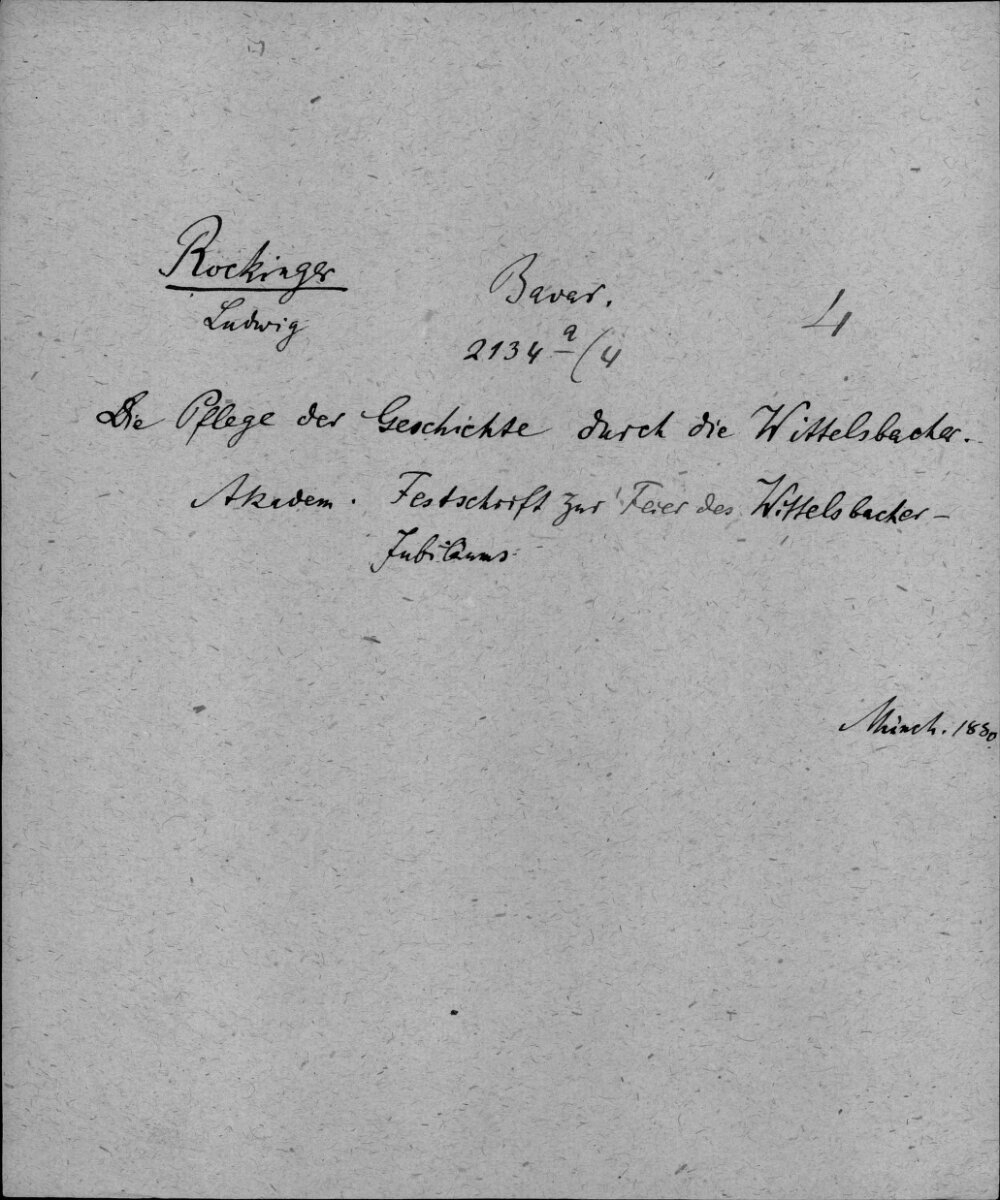 Rockinger
Ludwig
Bavar.
4
2134 a (4
Die Pflege der Geschichte durch die Wittelsbacher.
Akadem. Festschrift zur Feier des Wittelsbacher-
Jubiläums
Münch. 1880.